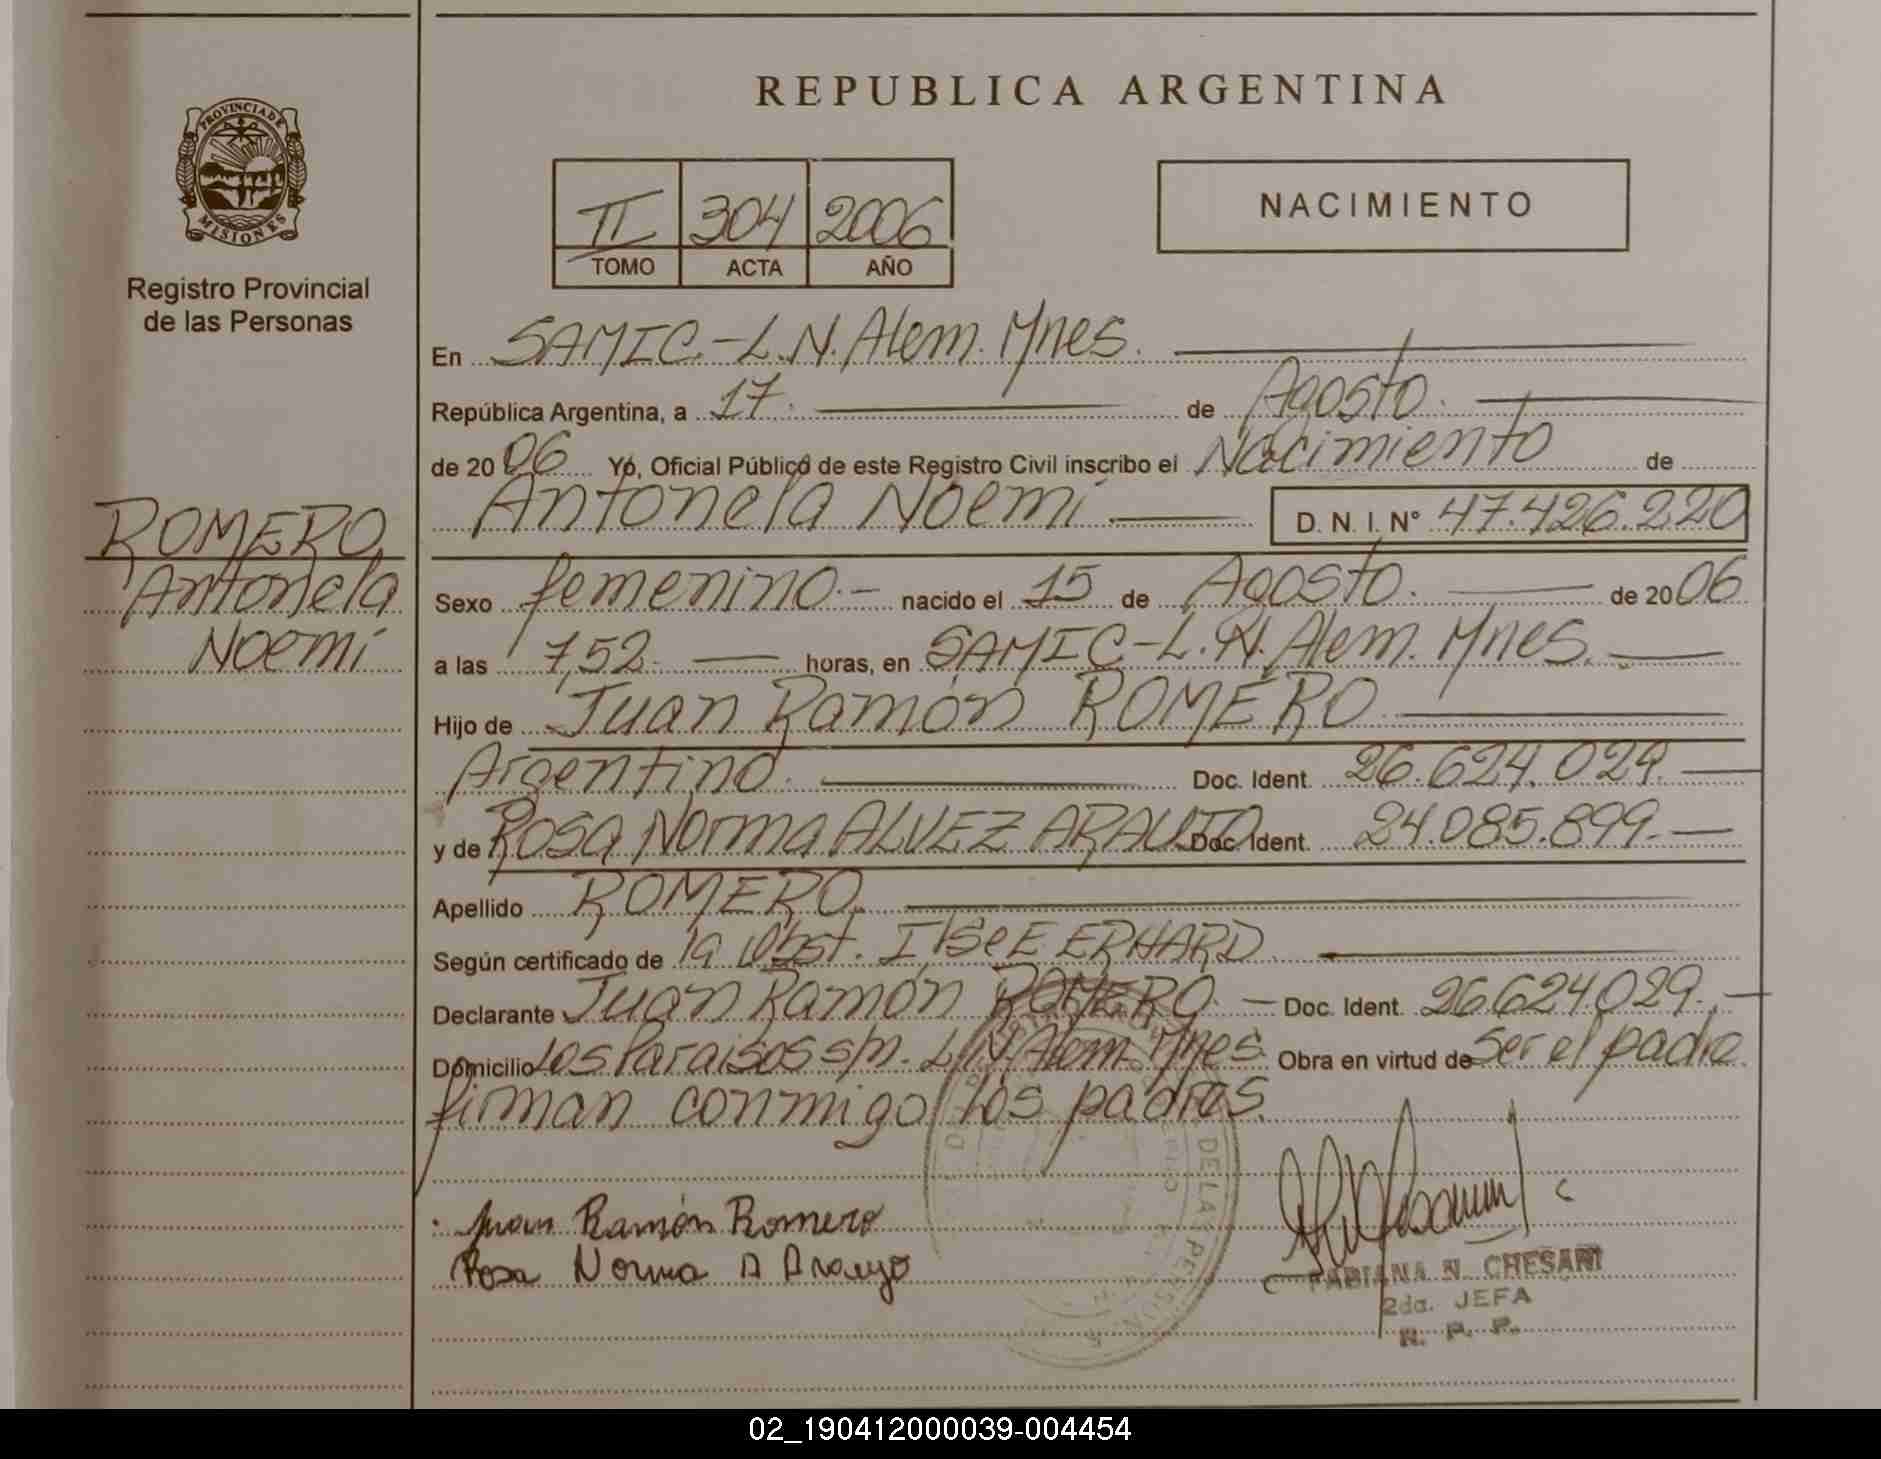 REPUBLICA ARGENTINA
PROVINCIA DE MISIONES
Registro Provincial
de las Personas
II 304 2006
TOMO ACTA AÑO
NACIMIENTO
En SAMIC.-L.N.Alem. Mnes.
República Argentina, a 17. de Agosto.
de 2006 Yo, Oficial Público de este Registro Civil inscribo el Nacimiento de
Antonela Noemi D. N. I. N° 47.426.220
ROMERO,
Antonela
Noemi
Sexo femenino.- nacido el 15 de Agosto. de 2006
a las 7,52. horas, en SAMIC-L.N.Alem. Mnes.
Hijo de Juan Ramón ROMERO.
Argentino. Doc. Ident. 26.624.029.
y de Rosa Norma ALVEZ ARAUJO Doc. Ident. 24.085.899.
Apellido ROMERO.
Según certificado de la Obst. Ilse E ERHARD.
Declarante Juan Ramón ROMERO. Doc. Ident. 26.624.029.
Domicilio Los Paraisos s/n. L.N.Alem. Mnes. Obra en virtud de ser el padre.
firman conmigo los padres.
Juan Ramón Romero
Rosa Norma A Araujo
DE LAS PERSONAS
FABIANA N. CHESANI
2da. JEFA
R. P. P.
02_190412000039-004454